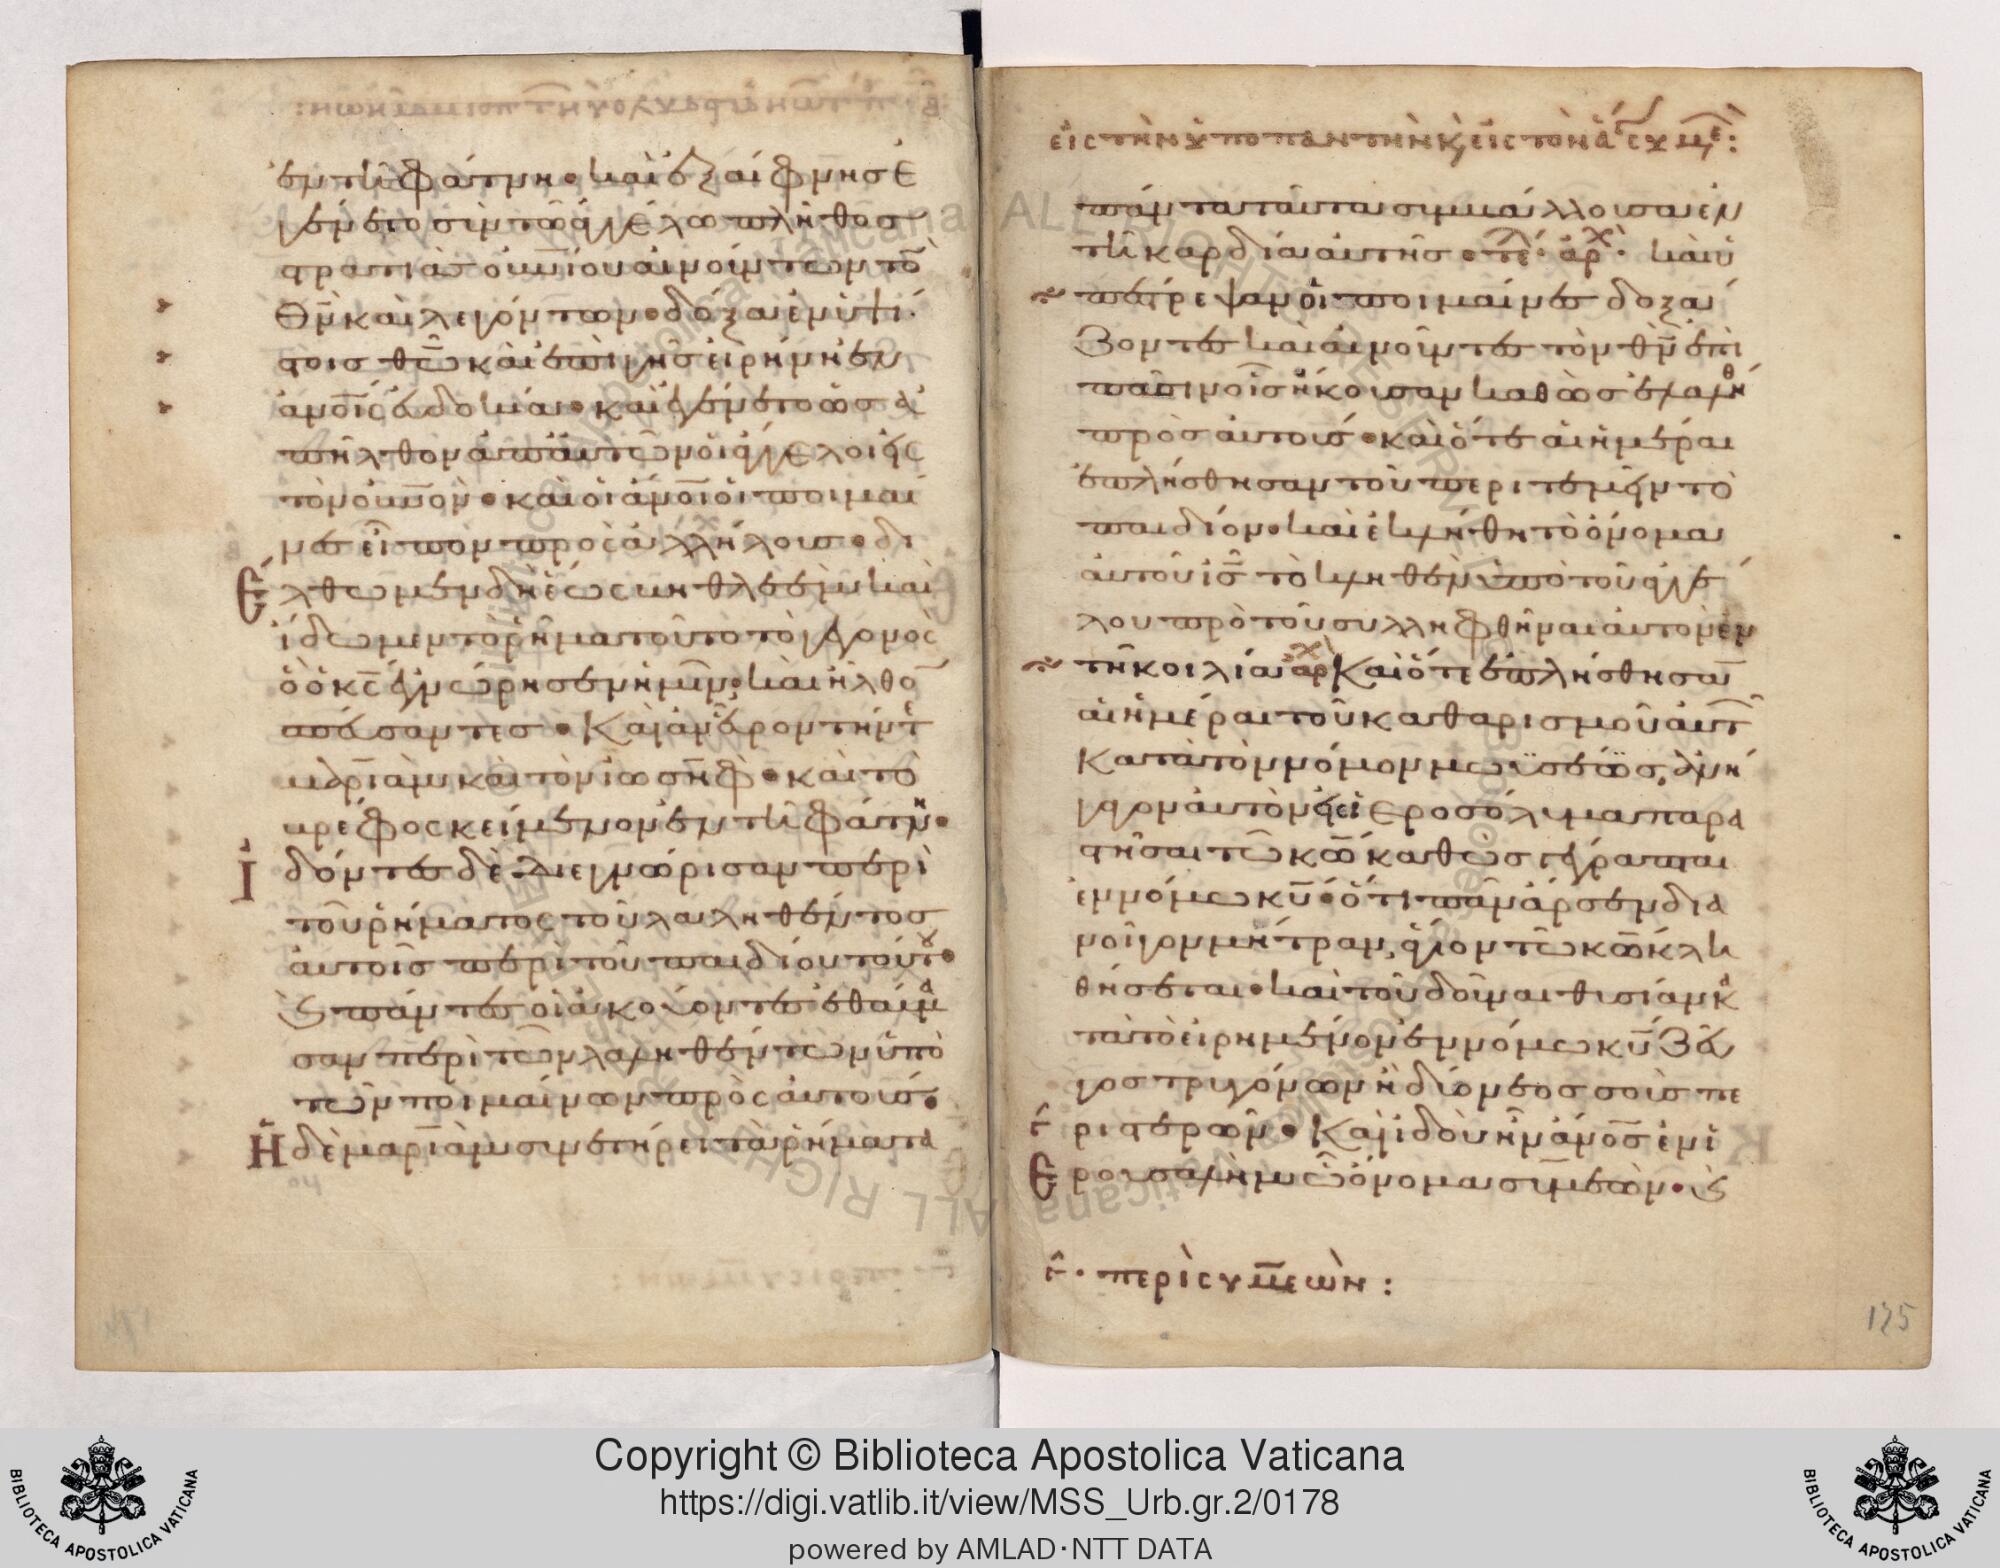 ἐν τῆ φάτνη· καὶ ἐξαίφνησ ἐ
γένετο σὺν τῶ ἀγγέλω πλῆθοσ
στρατιᾶσ οὐνίου αἰνούντων τὸ
θν καὶ λεγόντων· δόξα ἐν ὑψί
στοισ θῶ καὶ ἐπὶ γῆσ εἰρήνη ἐν
ἀνοις εὐδοκία· καὶ ἐγένετο ὡσ ἀ
πῆλθον ἀπ αὐτῶν οἱ ἄγγελοι εἰς
τὸν οὐνον· καὶ οἱ ἄνοι οἱ ποιμέ
νεσ εἶπον πρὸς ἀλλήλουσ· δι
έλθωμεν δὴ ἕως βηθλεὲμ καὶ
ἴδωμεν τὸ ῥῆμα τοῦτο τὸ γεγονὸς
ὃ ὁ κς ἐγνώρησεν ἡμῖν· καὶ ἦλθο
σπεύσαντεσ· Καὶ ἀνεῦρον τήν τε
μαριὰμ καὶ τὸν ἰωσὴφ· καὶ τὸ
βρέφος κείμενον ἐν τῆ φάτνη·
Ἰδόντεσ δὲ διεγνώρισαν περὶ
τοῦ ῥήματος τοῦ λαληθέντοσ
αὐτοῖσ περὶ τοῦ παιδίου τούτου·
ϛ πάντεσ οἱ ἀκούοντεσ ἐθαύμα
σαν περὶ τῶν λαληθέντων ὑπὸ
τῶν ποιμένων πρὸς αὐτούσ·
Ἡ δὲ μαριὰμ συνετήρει τὰ ῥήματα
εἰς τὴν ὑποπαντὴν κ, εἰς τὸν ἅ συμε:
πάντα ταῦτα συμβάλλουσα ἐν
τῆ καρδία αὐτῆσ· τε· ἀρχ· καὶ ὑ
πέστρεψαν οἱ ποιμένεσ δοξά
ζοντεσ καὶ αἰνοῦντεσ τὸν θν ἐπὶ
πᾶσιν οἷσ ἤκουσαν καθὼσ ἐλαλήθη
πρὸσ αὐτούσ· καὶ ὅτε αἱ ἡμέραι
ἐπλήσθησαν τοῦ περιτεμεῖν τὸ
παιδίον· καὶ ἐκλήθη τὸ ὄνομα
αὐτοῦ ισ τὸ κληθὲν ὑπὸ τοῦ ἀγγέ
λου πρὸ τοῦ συλληφθῆναι αὐτὸν ἐν
τῆ κοιλία αρχ Καὶ ὅτε ἐπλήσθησαν
αἱ ἡμέραι τοῦ καθαρισμοῦ αὐτ
Κατὰ τὸν νόμον μωϋσέωσ, ἀνή
γαγον αὐτὸν εἰσ ἱεροσόλυμα παρα
στῆσαι τῶ κω καθὼσ γέγραπται
ἐν νόμω κυ· ὅτι πᾶν ἄρσεν δια
νοῖγον μήτραν, ἅγιον τῶ κω κλη
θήσεται· καὶ τοῦ δοῦναι θυσίαν κα
τὰ τὸ εἰρημένον ἐν νόμω κυ ζεῦ
γοσ τρυγόνων ἢ δύο νεοσσοὺσ πε
ριστερῶν· Καὶ ἰδοὺ ἦν ἄνοσ ἐν ἱ
Ερουσαλὴμ ὧ ὄνομα συμεών· ϛ
γ· περὶ συμεών:
175
Copyright © Biblioteca Apostolica Vaticana
https://digi.vatlib.it/view/MSS_Urb.gr.2/0178
powered by AMLAD·NTT DATA
BIBLIOTECA APOSTOLICA VATICANA
BIBLIOTECA APOSTOLICA VATICANA